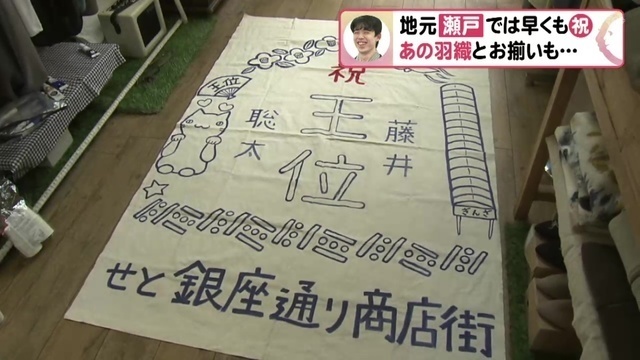 地元 瀬戸 では早くも 祝
あの羽織とお揃いも…
祝
王位
藤井
聡太
王位
ぎんざ
せと銀座通り商店街